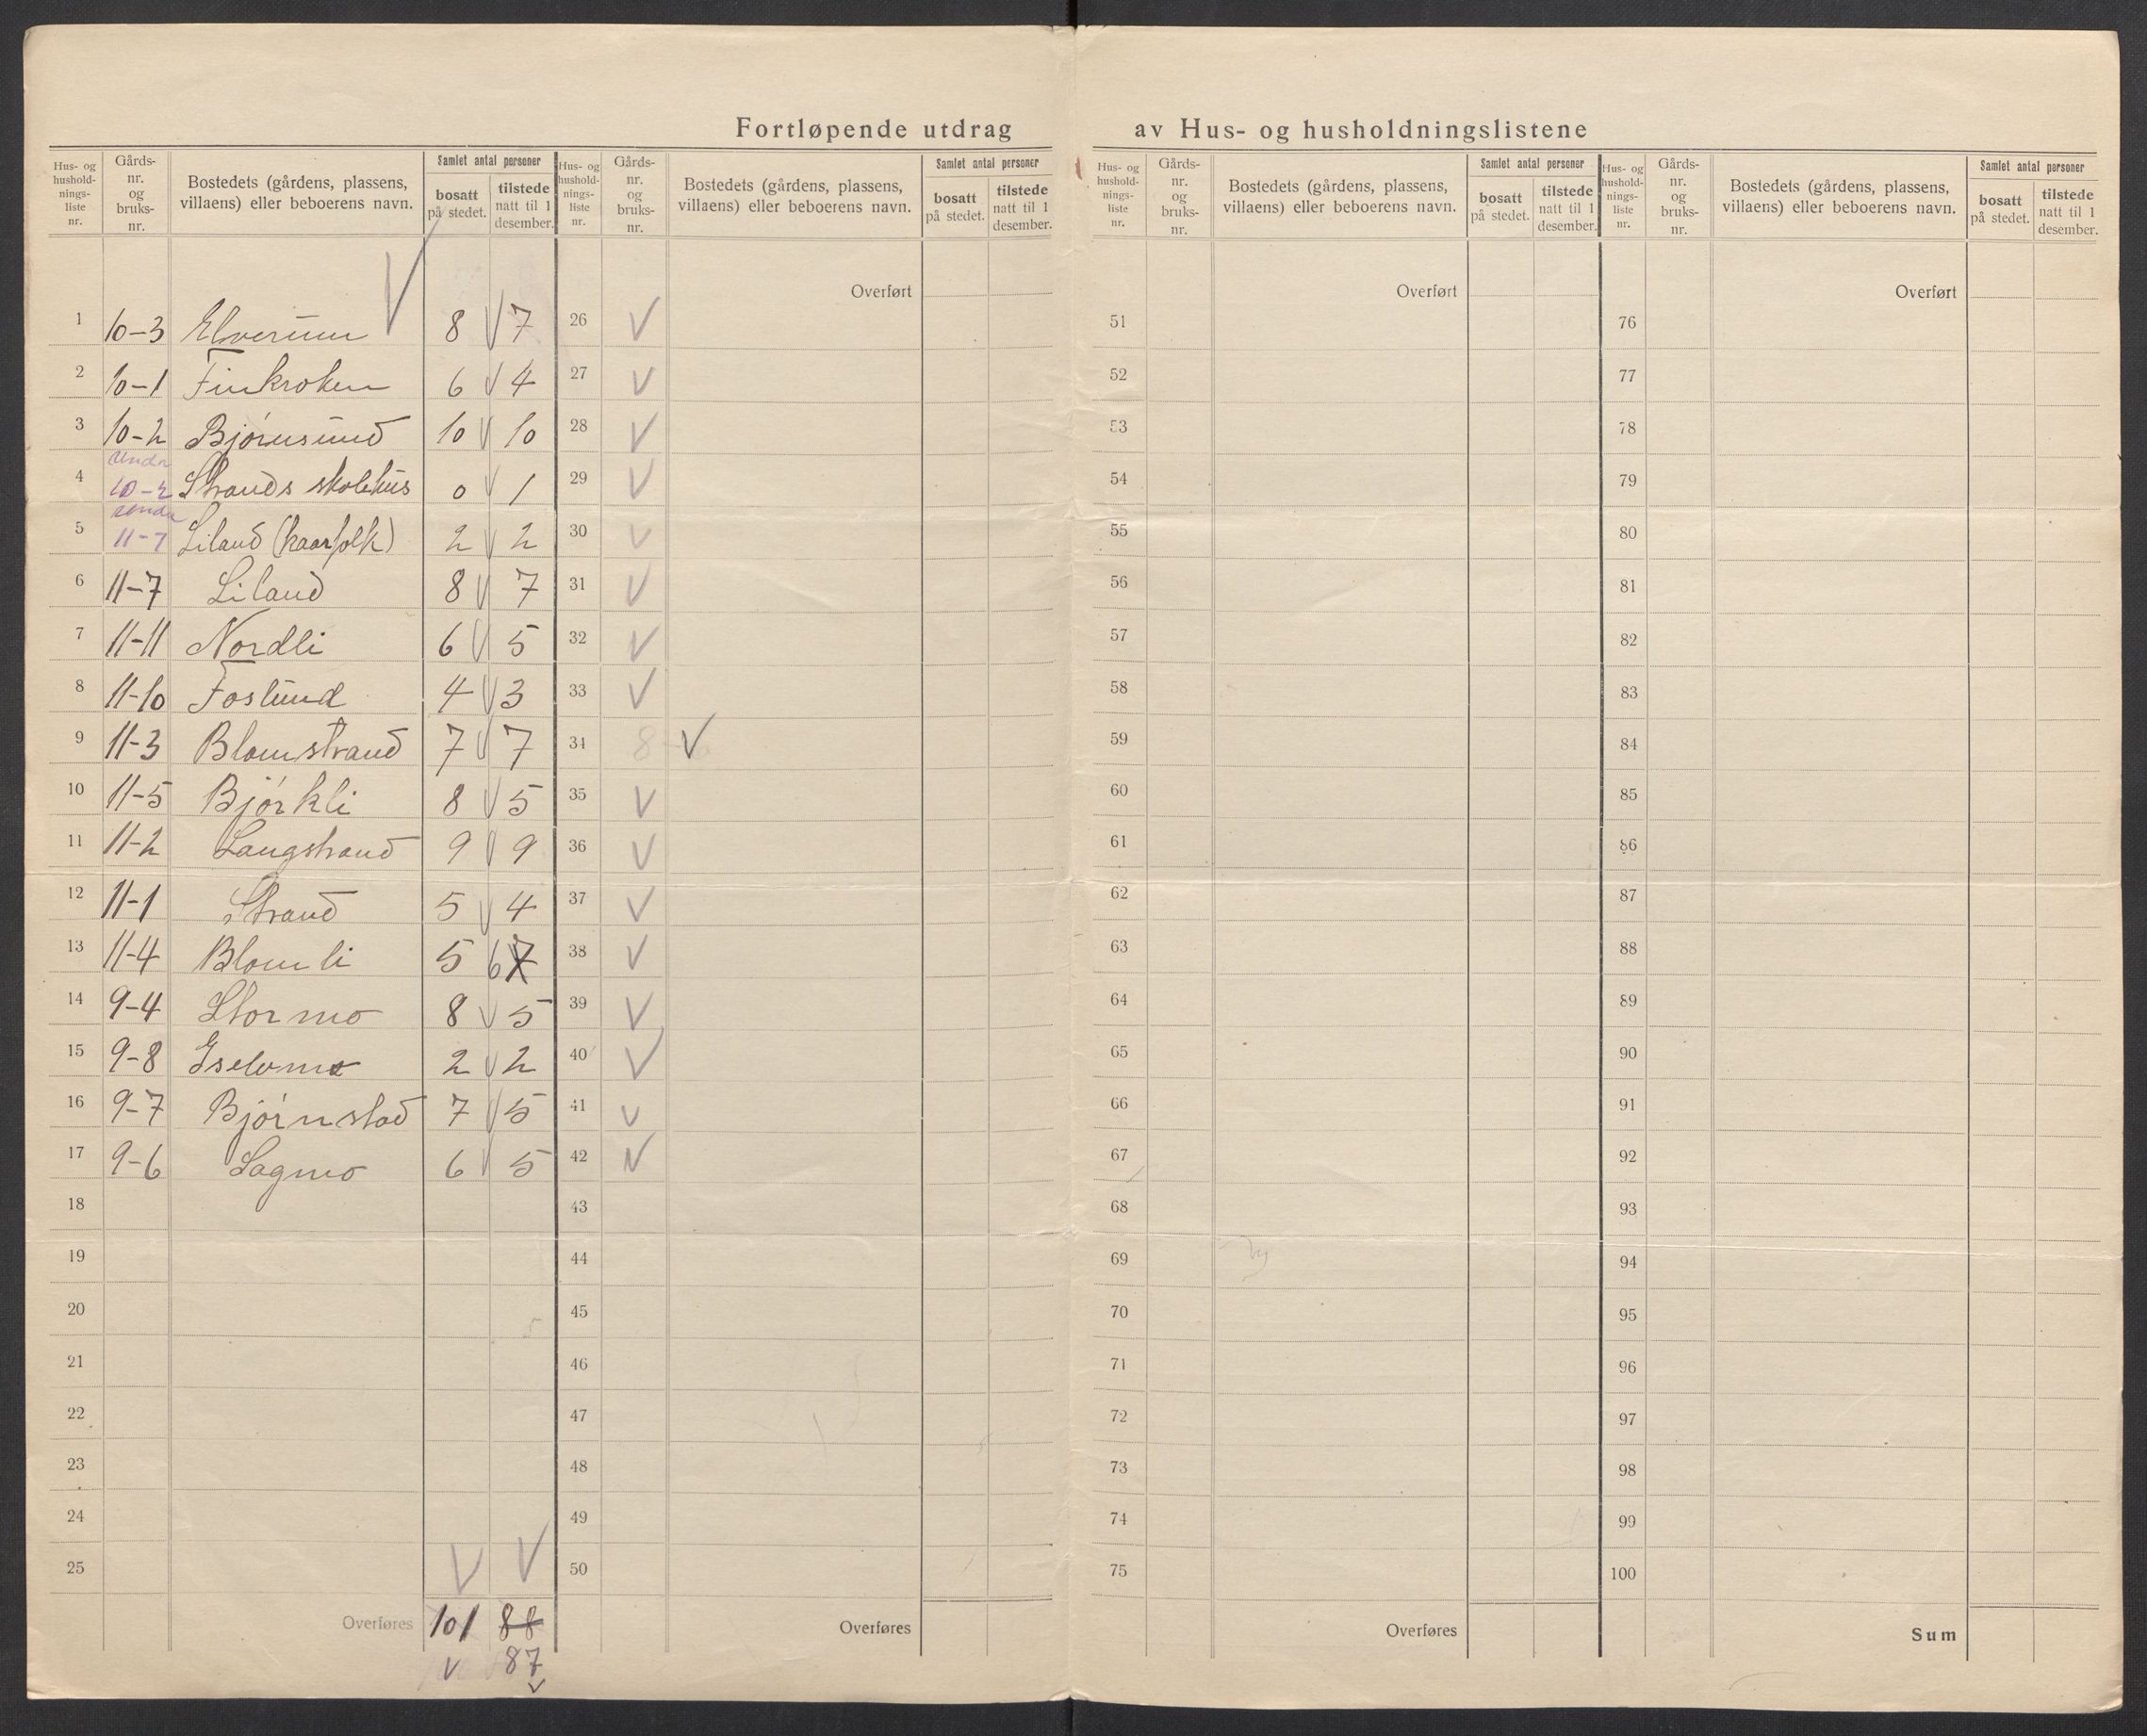 Fortløpende utdrag av Hus- og husholdningslistene
Hus- og hushold-nings-liste nr. | Gårds-nr. og bruks-nr. | Bostedets (gårdens, plassens, villaens) eller beboerens navn. | Samlet antal personer | bosatt på stedet. | tilstede natt til 1 desember.
Hus- og hushold-nings-liste nr. | Gårds-nr. og bruks-nr. | Bostedets (gårdens, plassens, villaens) eller beboerens navn. | Samlet antal personer | bosatt på stedet. | tilstede natt til 1 desember.
Hus- og hushold-nings-liste nr. | Gårds-nr. og bruks-nr. | Bostedets (gårdens, plassens, villaens) eller beboerens navn. | Samlet antal personer | bosatt på stedet. | tilstede natt til 1 desember.
Hus- og hushold-nings-liste nr. | Gårds-nr. og bruks-nr. | Bostedets (gårdens, plassens, villaens) eller beboerens navn. | Samlet antal personer | bosatt på stedet. | tilstede natt til 1 desember.
1 10-3 Elverum 8 7
2 10-1 Finkroken 6 4
3 10-2 Bjørnsund 10 10
4 under 10-2 Strands skolehus 0 1
5 under 11-7 Liland (kaarfolk) 2 2
6 11-7 Liland 8 7
7 11-11 Nordli 6 5
8 11-10 Foslund 4 3
9 11-3 Blomstrand 7 7
10 11-5 Bjørkli 8 5
11 11-2 Langstrand 9 9
12 11-1 Strand 5 4
13 11-4 Blomli 5 6 7
14 9-4 Stormo 8 5
15 9-8 Iselvmo 2 2
16 9-7 Bjørnstad 7 5
17 9-6 Lagmo 6 5
18
19
20
21
22
23
24
25
Overføres 101 88
87
Overført
26
27
28
29
30
31
32
33
34
35
36
37
38
39
40
41
42
43
44
45
46
47
48
49
50
Overføres
Overført
51
52
53
54
55
56
57
58
59
60
61
62
63
64
65
66
67
68
69
70
71
72
73
74
75
Overføres
Overført
76
77
78
79
80
81
82
83
84
85
86
87
88
89
90
91
92
93
94
95
96
97
98
99
100
Sum